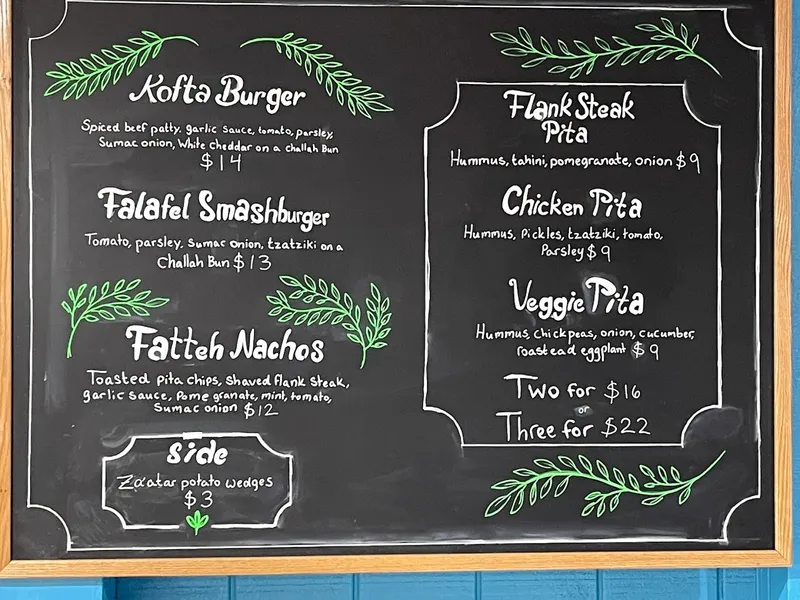 Kofta Burger
Spiced beef patty, garlic sauce, tomato, parsley,
Sumac onion, White Cheddar on a challah Bun
$14
Falafel Smashburger
Tomato, parsley, Sumac onion, tzatziki on a
Challah Bun $13
Fatteh Nachos
Toasted pita chips, shaved flank steak,
garlic sauce, Pomegranate, mint, tomato,
Sumac onion $12
Side
Za'atar potato wedges
$3
Flank Steak
Pita
Hummus, tahini, pomegranate, onion $9
Chicken Pita
Hummus, Pickles, tzatziki, tomato,
Parsley $9
Veggie Pita
Hummus, chickpeas, onion, cucumber,
roastead eggplant $9
Two for $16
or
Three for $22